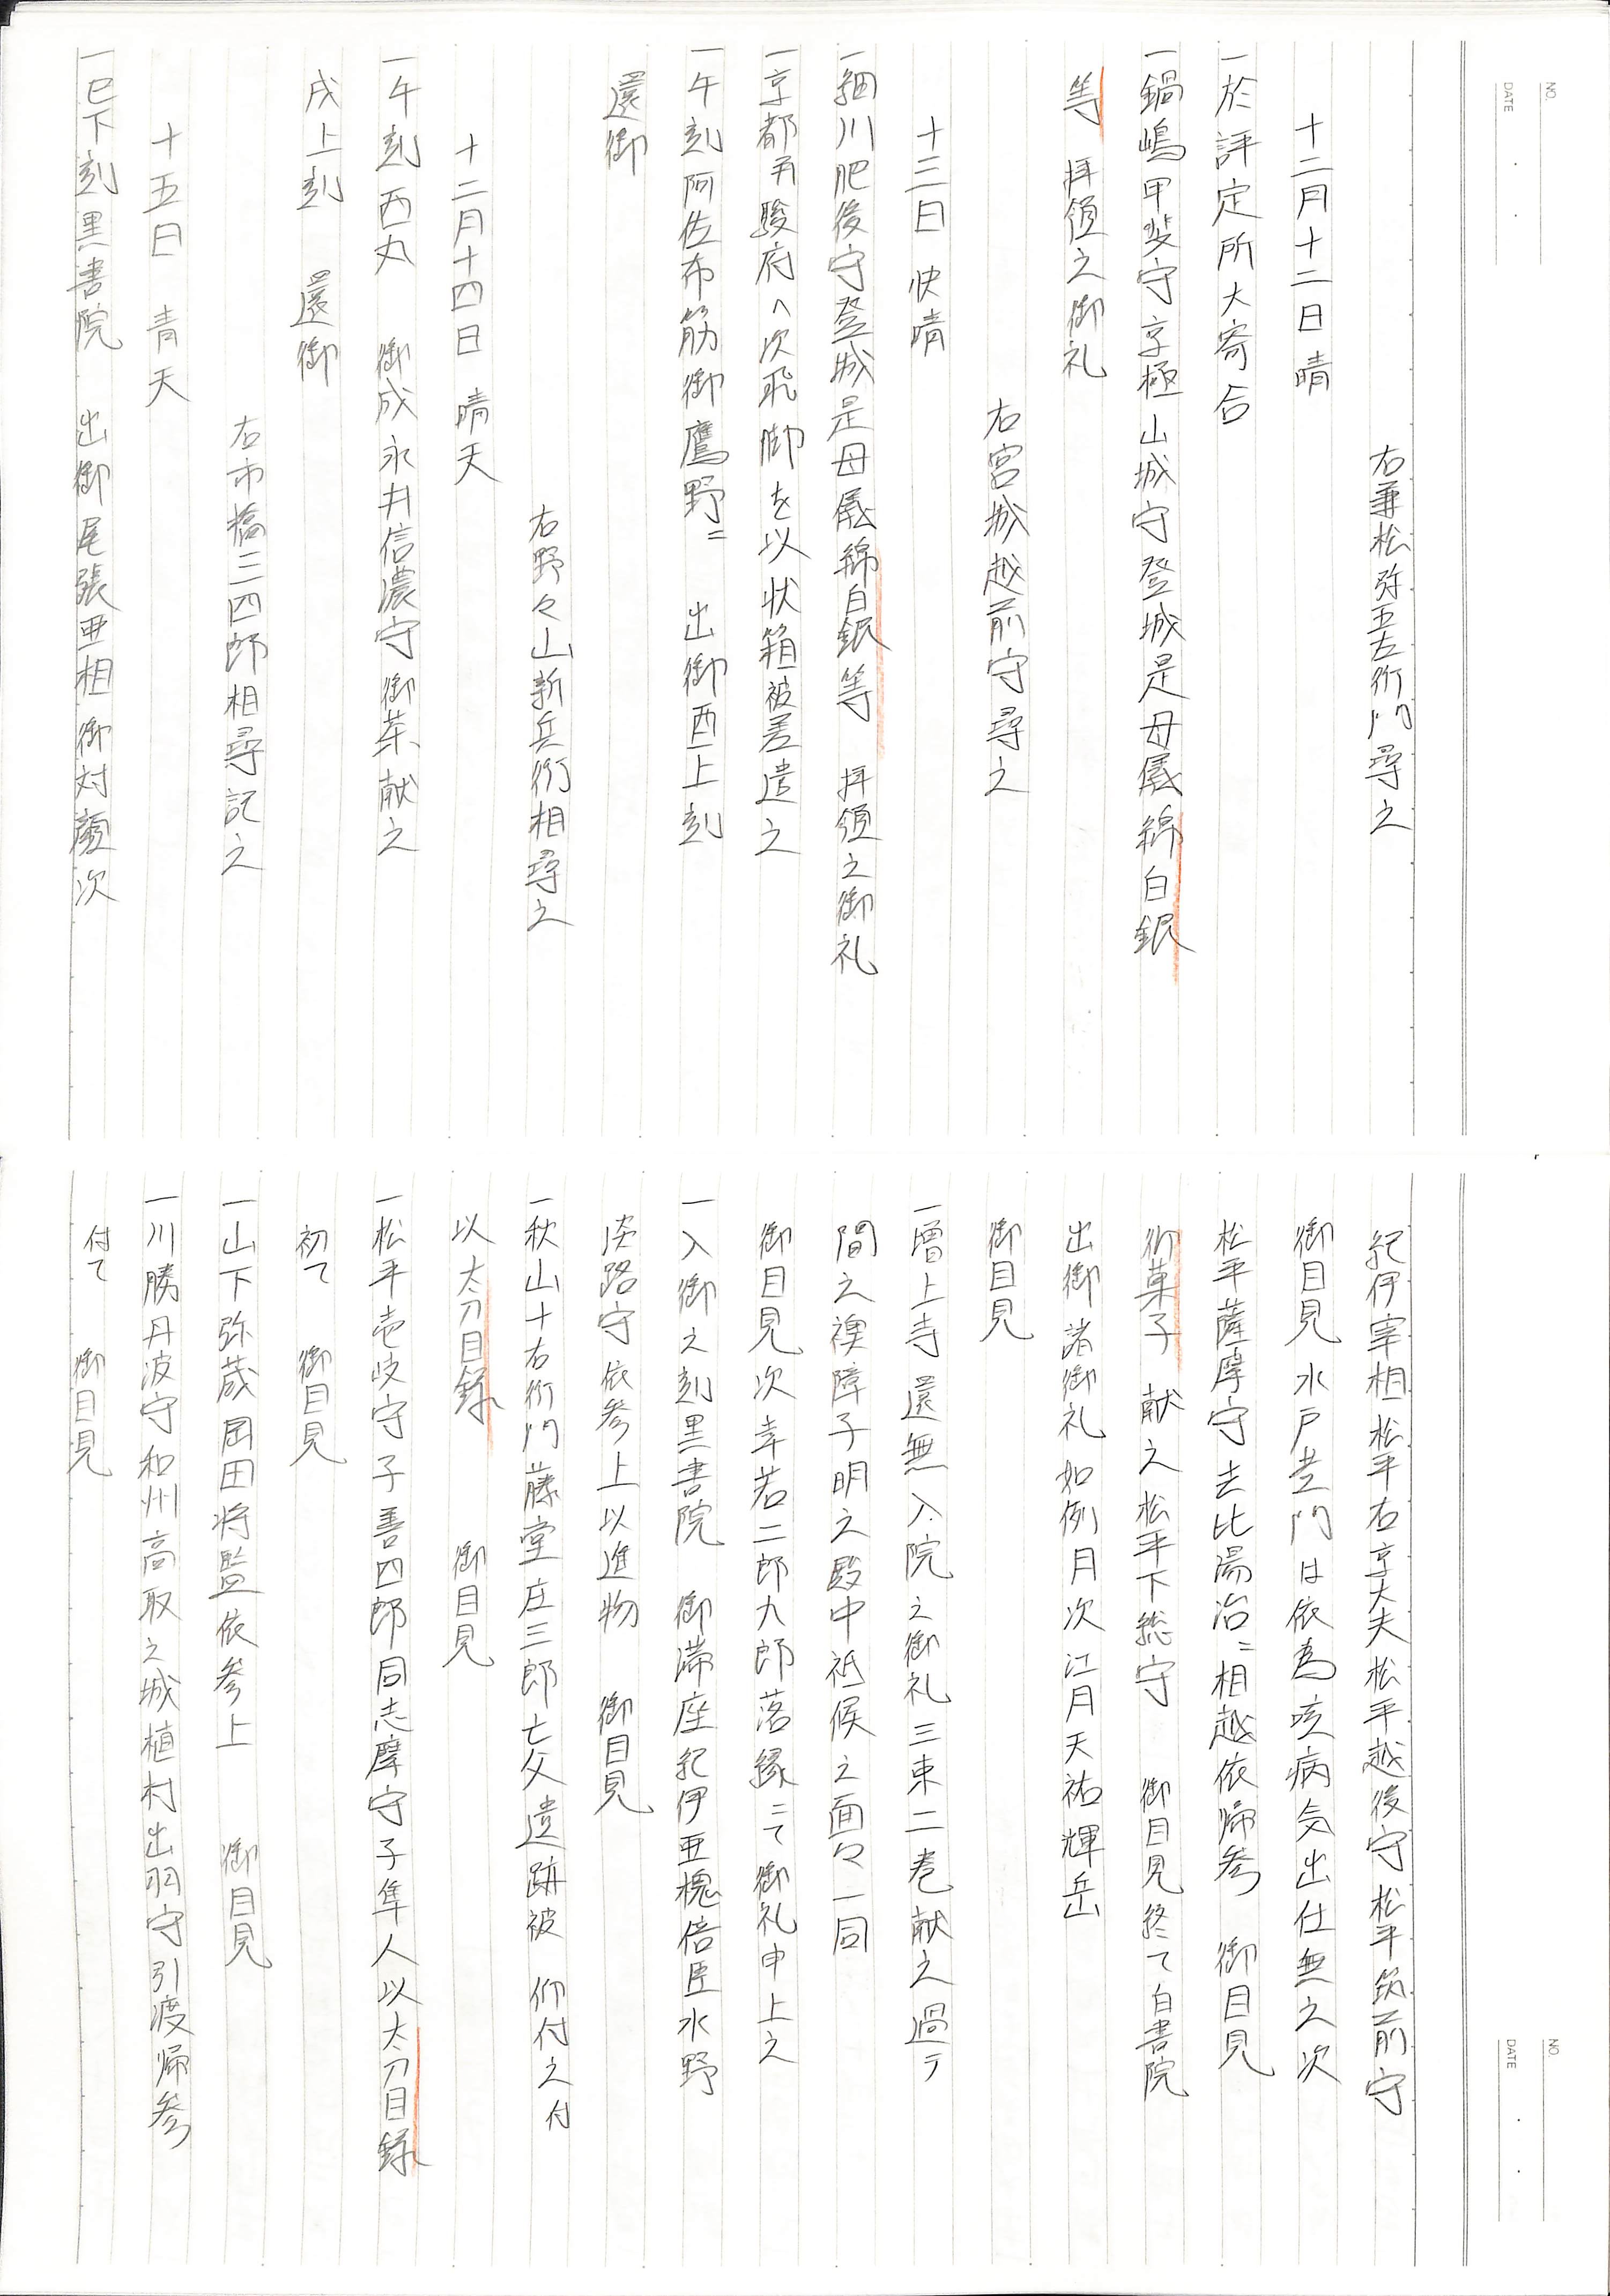 NO.
DATE
右兼松弥五左衛門尋之
十二月十二日 晴
一於評定所大寄合
一鍋嶋甲斐守京極山城守登城是母儀綿白銀
等 拝領之御礼
右宮城越前守尋之
十三日 快晴
一細川肥後守登城是母儀綿白銀等 拝領之御礼
一京都并駿府へ次飛脚を以状箱被差遣之
一午刻阿佐布筋御鷹野ニ 出御酉上刻
還御
右野々山新兵衛相尋之
十二月十四日 晴天
一午刻西丸 御成永井信濃守御茶献之
戌上刻 還御
右市橋三四郎相尋記之
十五日 青天
一巳下刻黒書院 出御尾張亜相御対顔次
NO.
DATE
紀伊宰相松平右京大夫松平越後守松平筑前守
御目見水戸黄門は依為咳病気出仕無之次
松平薩摩守去比湯治ニ相越依帰参 御目見
御菓子献之松平下総守 御目見終て白書院
出御諸御礼如例月次江月天祐輝岳
御目見
一増上寺還無入院之御礼三束二巻献之過テ
間之襖障子明之殿中祗候之面々一同
御目見次幸若二郎九郎落縁ニて御礼申上之
一入御之刻黒書院 御滞座紀伊亜槐倍臣水野
淡路守依参上以進物 御目見
一秋山十右衛門藤堂庄三郎亡父遺跡被 仰付之付
以太刀目録 御目見
一松平壱岐守子善四郎同志摩守子隼人以太刀目録
初て 御目見
一山下弥蔵岡田将監依参上 御目見
一川勝丹波守和州高取之城植村出羽守引渡帰参
付て 御目見